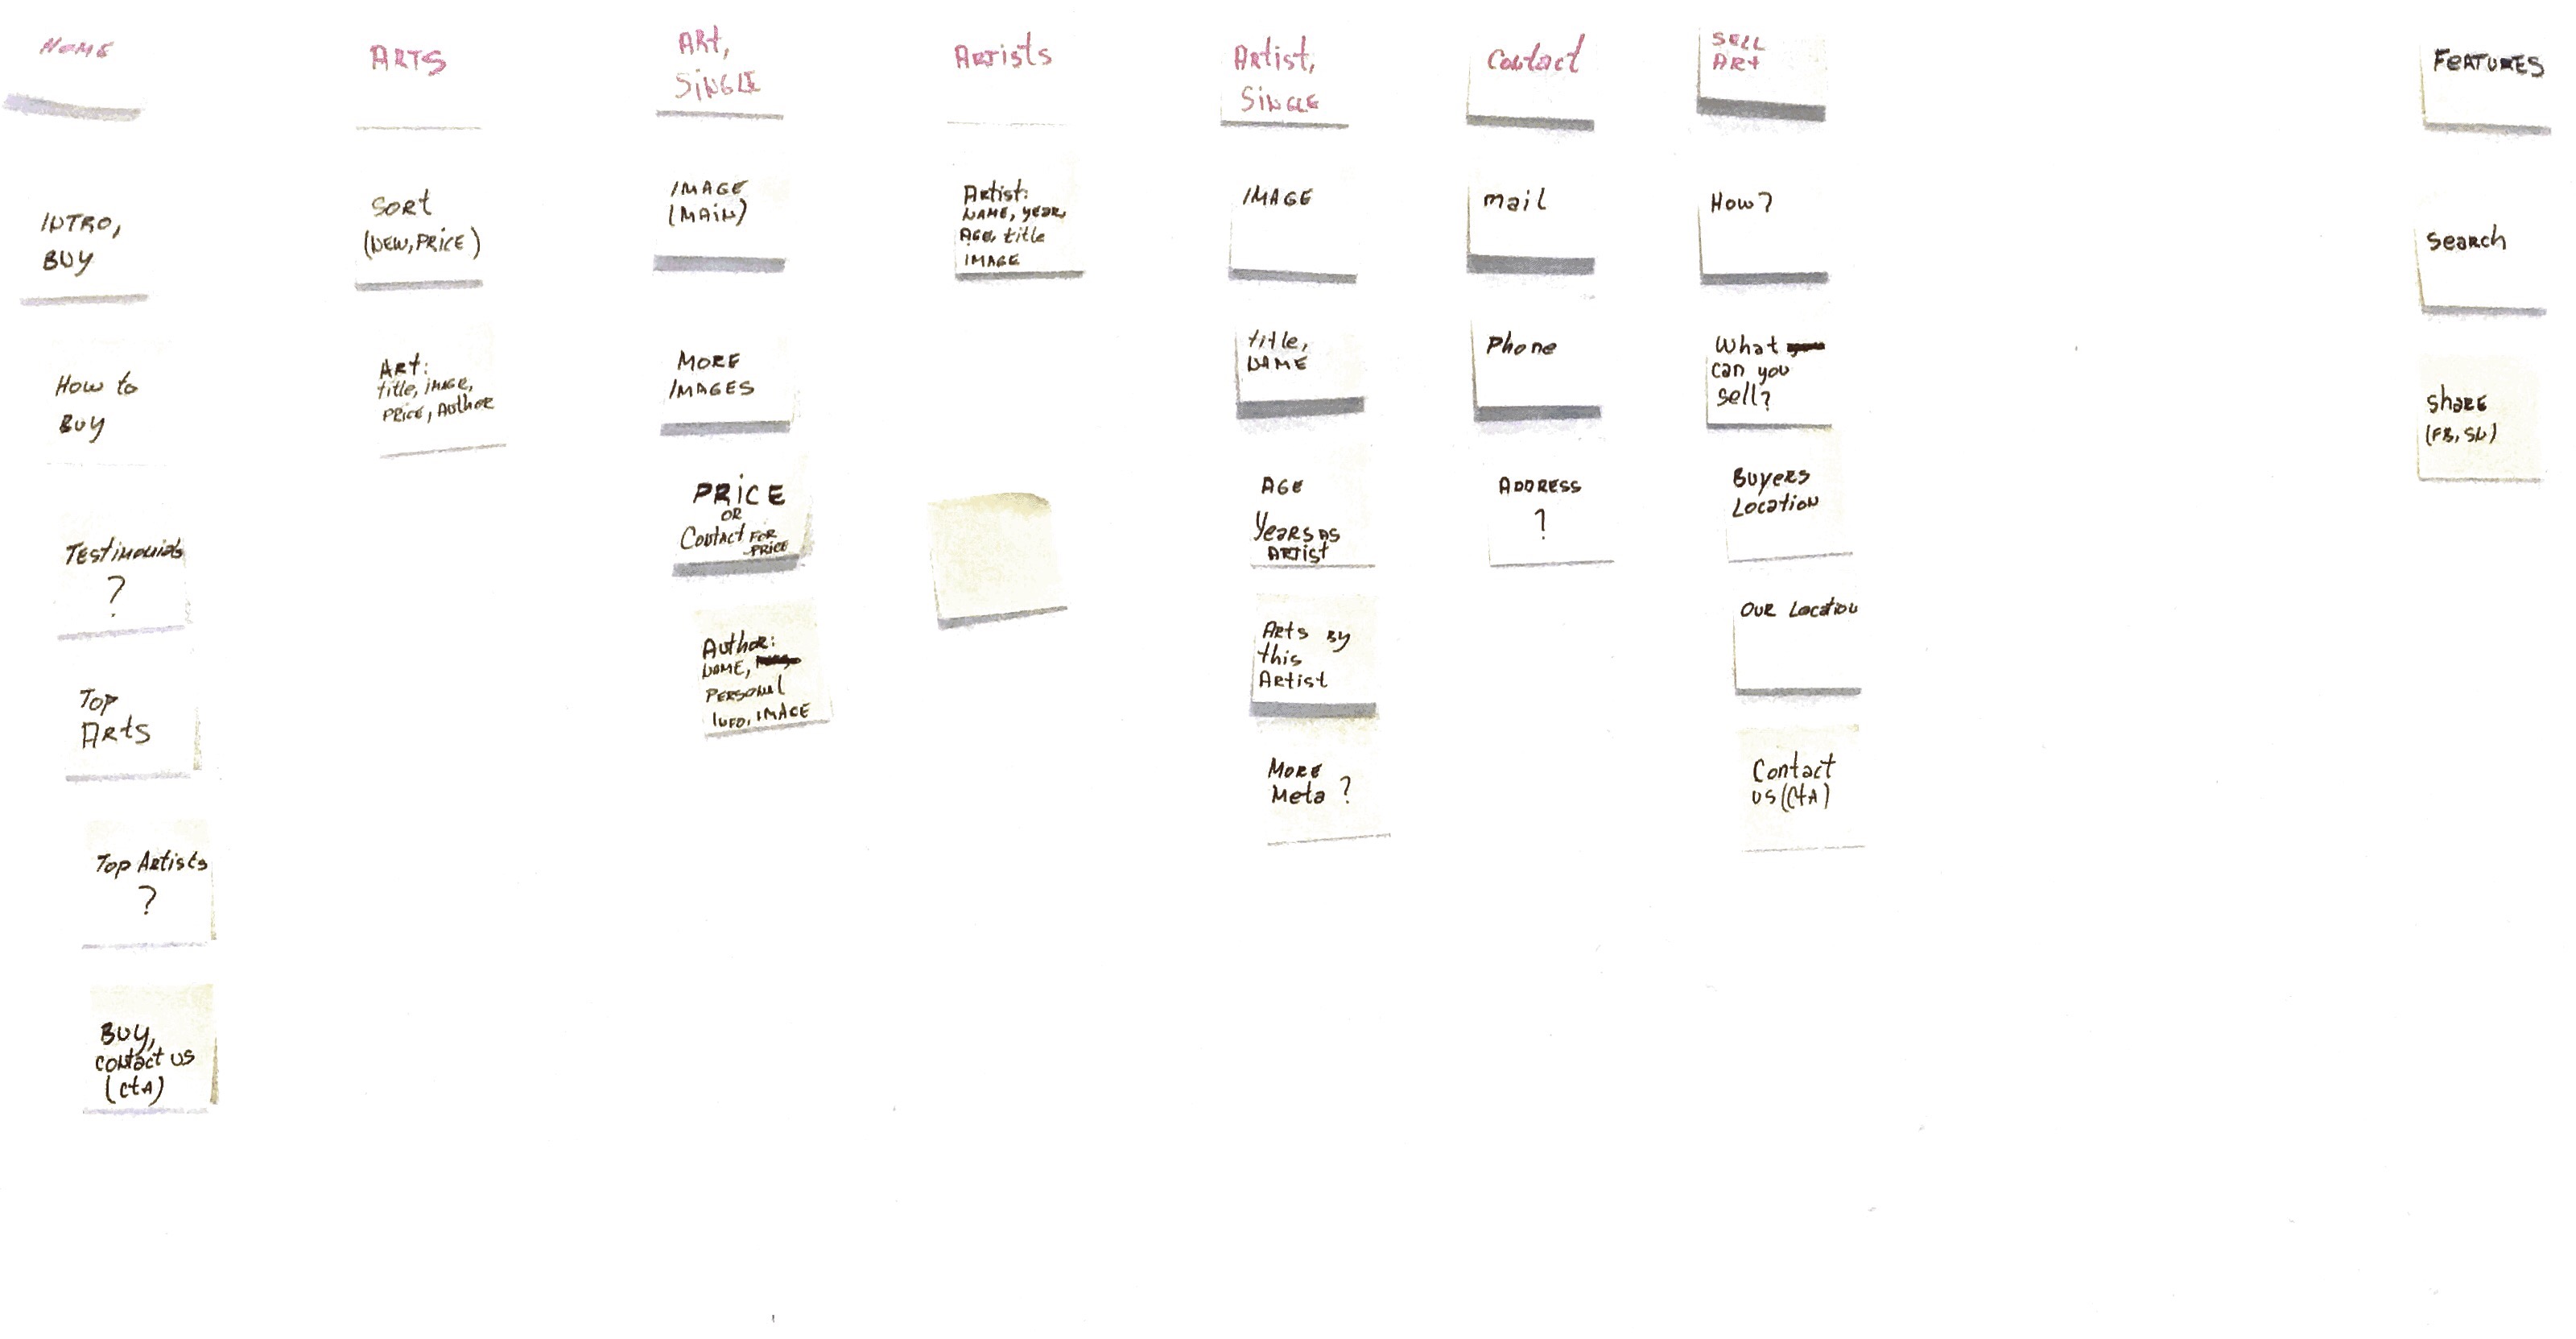 HOME
INTRO,
BUY
How to
BUY
TESTIMONIALS
?
TOP
ARTS
TOP ARTISTS
?
BUY,
CONTACT US
(CTA)
ARTS
SORT
(NEW, PRICE)
ART:
title, IMAGE,
PRICE, AUTHOR
ARt,
SINGLE
IMAGE
(MAIN)
MORE
IMAGES
PRICE
OR
Contact FOR
PRICE
Author:
NAME,
PERSONAL
INFO, IMAGE
Artists
Artist:
NAME, year,
AGE, title
IMAGE
Artist,
SINGLE
IMAGE
title,
NAME
AGE
Years as
ARTIST
Arts by
this
Artist
MORE
Meta ?
Contact
mail
Phone
ADDRESS
?
SELL
ARt
How?
What
can you
sell?
Buyers
Location
OUR Location
Contact
US (CTA)
FEATURES
Search
Share